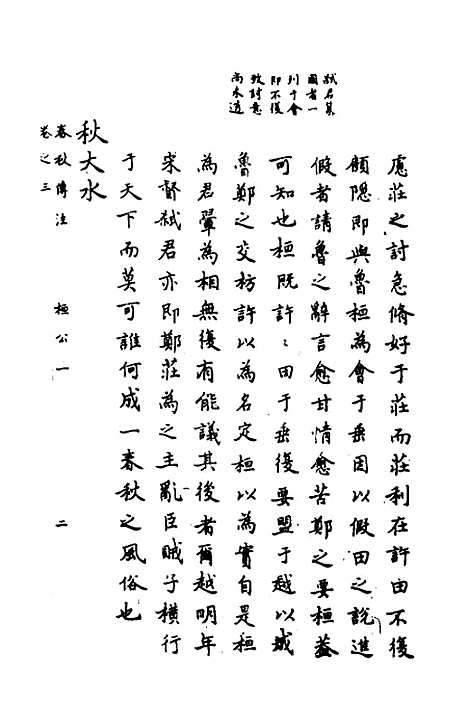 弑君篡
國者一
列于會
即不復
致討意
尚未遠
慮莊之討急脩好于莊而莊利在許田不復
顧隱即與魯桓為會于垂因以假田之說進
假者請魯之辭言愈甘情愈苦鄭之要桓益
可知也桓既許〻田于垂復要盟于越以城
魯鄭之交枋許以為名定桓以為實自是桓
為君翬為相無復有能議其後者爾越明年
宋督弑君亦即鄭莊為之主亂臣賊子橫行
于天下而莫可誰何成一春秋之風俗也
秋大水
春秋傳注
卷之三
桓公一
二